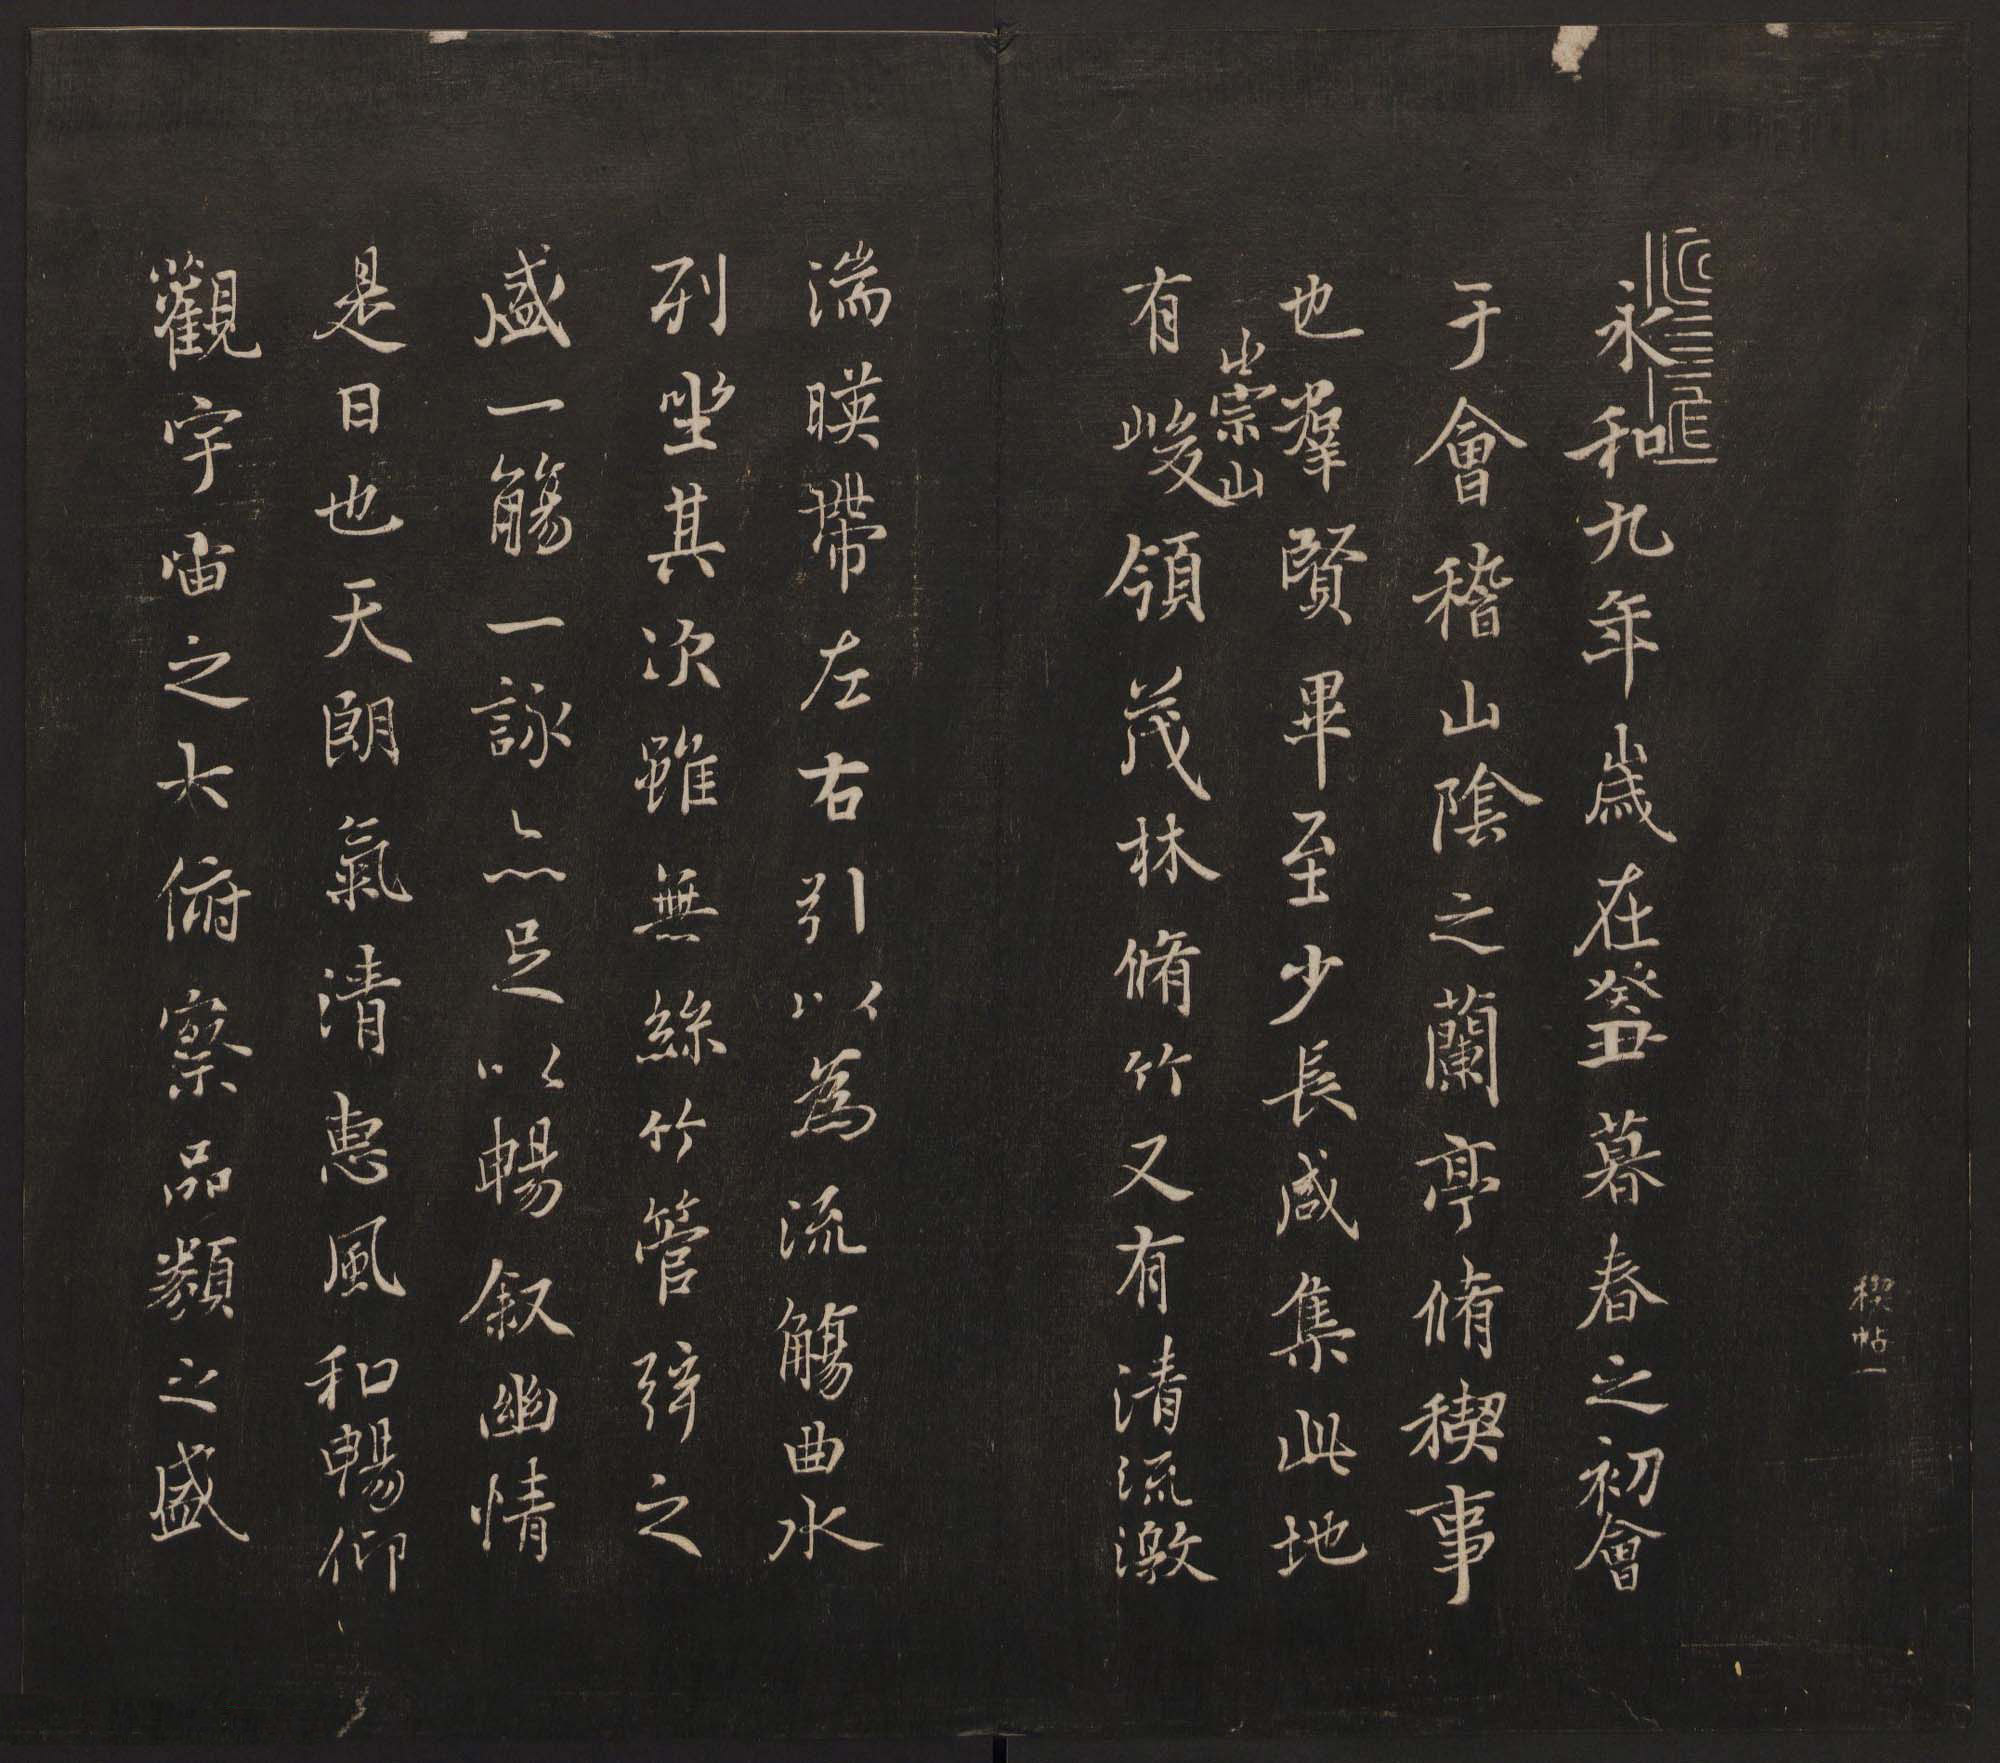 禊帖一
永和九年歲在癸丑暮春之初會
于會稽山陰之蘭亭脩稧事
也羣賢畢至少長咸集此地
崇山
有峻領茂林脩竹又有清流激
湍暎帶左右引以為流觴曲水
列坐其次雖無絲竹管弦之
盛一觴一詠亦足以暢叙幽情
是日也天朗氣清惠風和暢仰
觀宇宙之大俯察品類之盛